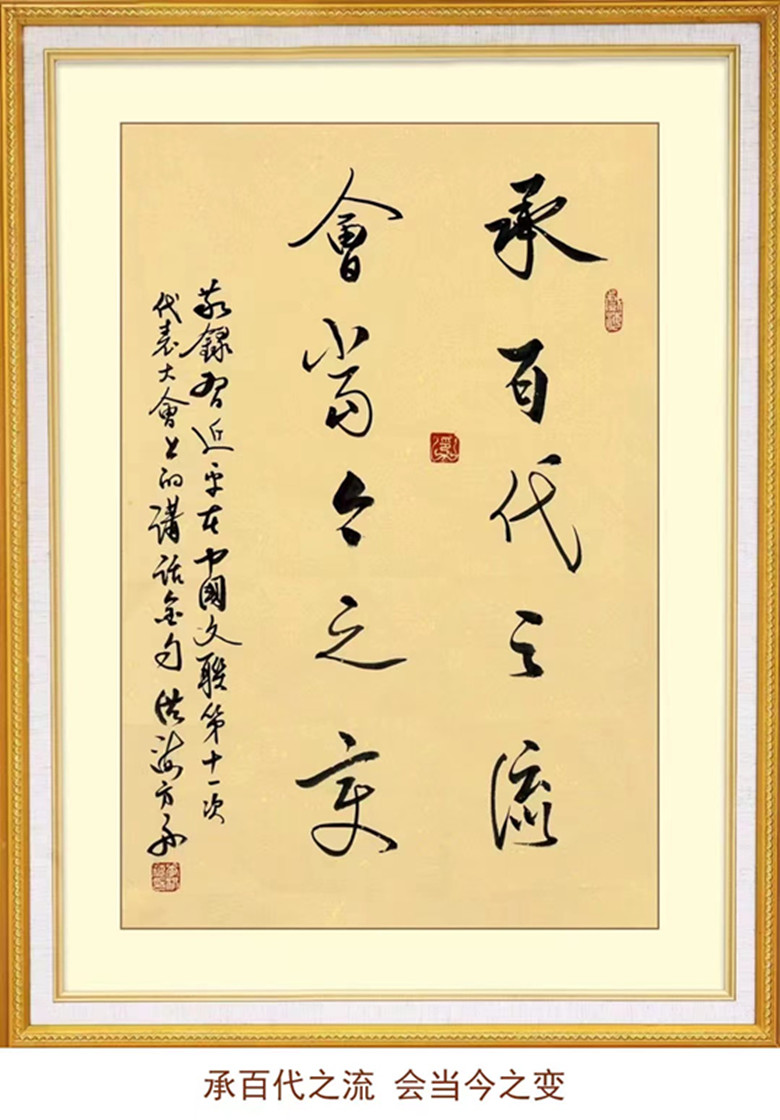 承百代之流
會當今之变
敬録習近平在中國文聯第十一次
代表大會上的講話金句 洪海方舟
承百代之流 会当今之变